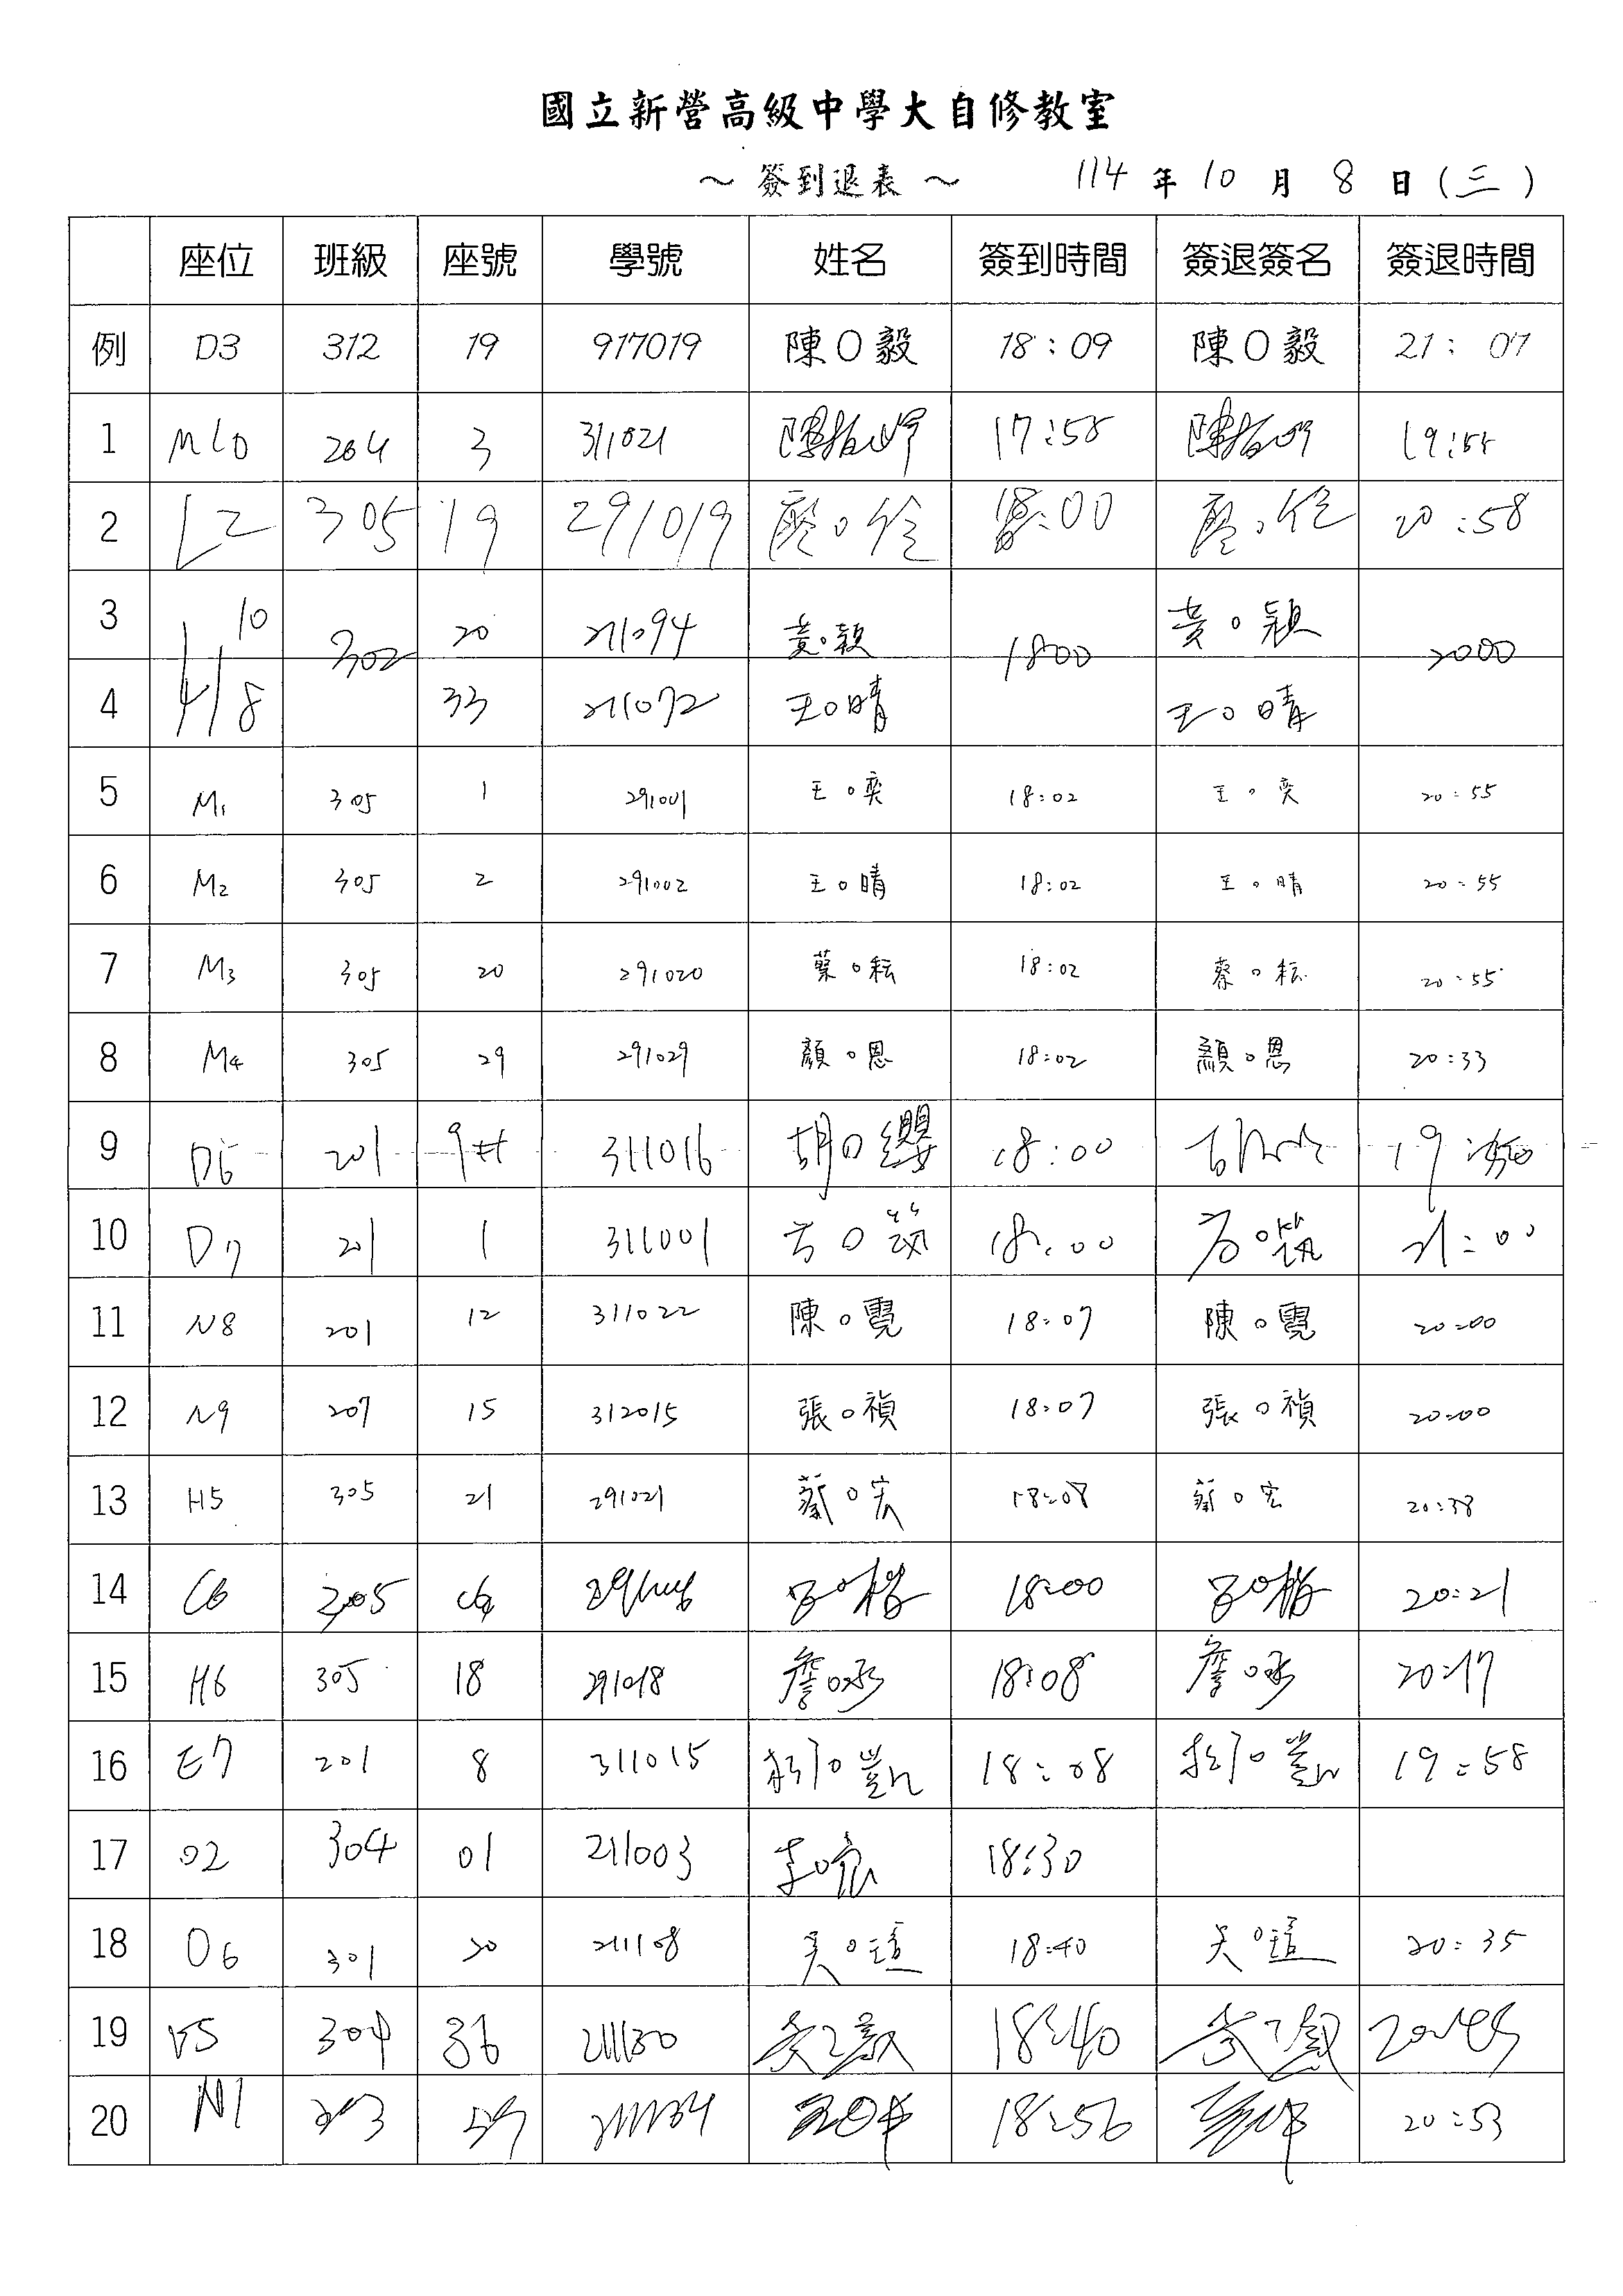 國立新營高級中學大自修教室
～ 簽到退表 ～ 114 年 10 月 8 日 (三)
座位 班級 座號 學號 姓名 簽到時間 簽退簽名 簽退時間
例 D3 312 19 917019 陳O毅 18:09 陳O毅 21: 07
1 M10 204 3 311021 17:58
2 L2 305 19 291019 廖O佺 18:00 廖O佺 20:58
3 10 302 20 211094 黃O穎 1800 黃O穎 2000
4 8 33 211072 王O晴 王O晴
5 M1 305 1 291001 王O奕 18:02 王O奕 20:55
6 M2 305 2 291002 王O晴 18:02 王O晴 20:55
7 M3 305 20 291020 蔡O耘 18:02 蔡O耘 20:55
8 M4 305 29 291029 顏O恩 18:02 顏O恩 20:33
9 D6 201 9 311016 胡O纓 18:00 19:
10 D7 201 1 311001 方O筑 18:00 方O筑 21:00
11 N8 201 12 311022 陳O霓 18:07 陳O霓 20:00
12 N9 207 15 312015 張O禎 18:07 張O禎 20:00
13 H5 305 21 291021 蔡O宏 18:08 蔡O宏 20:38
14 C6 305 18:00 20:21
15 H6 305 18 291018 詹O承 18:08 詹O承 20:17
16 E7 201 8 311015 18:08 19:58
17 O2 304 01 211003 李O宸 18:30
18 O6 301 30 211108 吳O瑄 18:40 吳O瑄 20:35
19 304 36 211130 18:40 20:45
20 N1 18:56 20:53